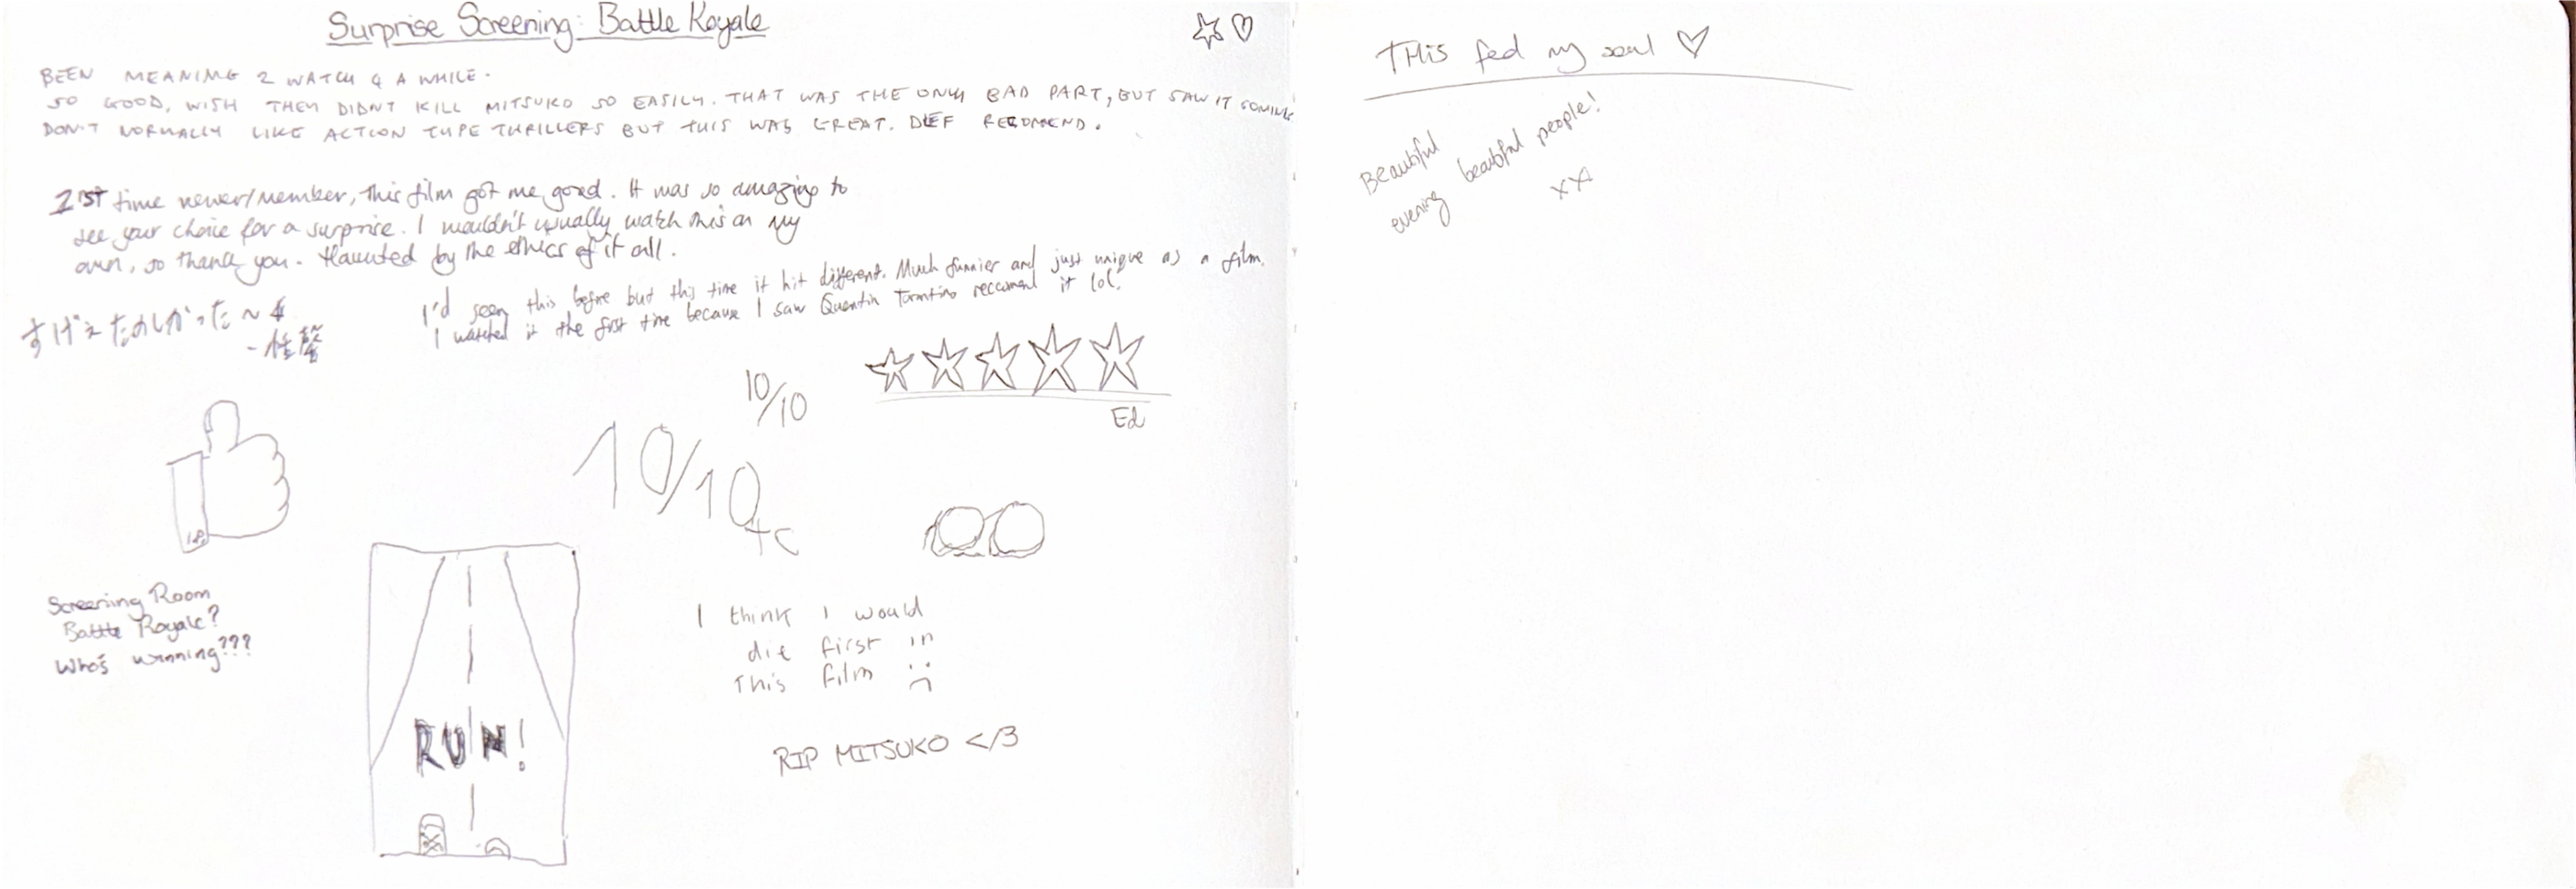 Surprise Screening: Battle Royale
BEEN MEANING 2 WATCH 4 A WHILE.
SO GOOD, WISH THEY DIDNT KILL MITSUKO SO EASILY. THAT WAS THE ONLY BAD PART, BUT SAW IT COMING
DON'T NORMALLY LIKE ACTION TYPE THRILLERS BUT THIS WAS GREAT. DEF RECOMEND.
1st time newer/member, this film got me good. It was so amazing to
see your choice for a surprise. I wouldn't usually watch this on my
own, so thank you. Haunted by the ethics of it all.
I'd seen this before but this time it hit different. Much funnier and just unique as a film.
I watched it the first time because I saw Quentin Tarntino reccomend it lol.
すげえたのしかった~
10/10
Ed
10/10
tc
Screening Room
Battle Royale?
Who's winning???
RUN!
I think I would
die first in
This film :(
RIP MITSUKO </3
THis fed my soul ♡
Beautiful
evening beautiful people!
xx